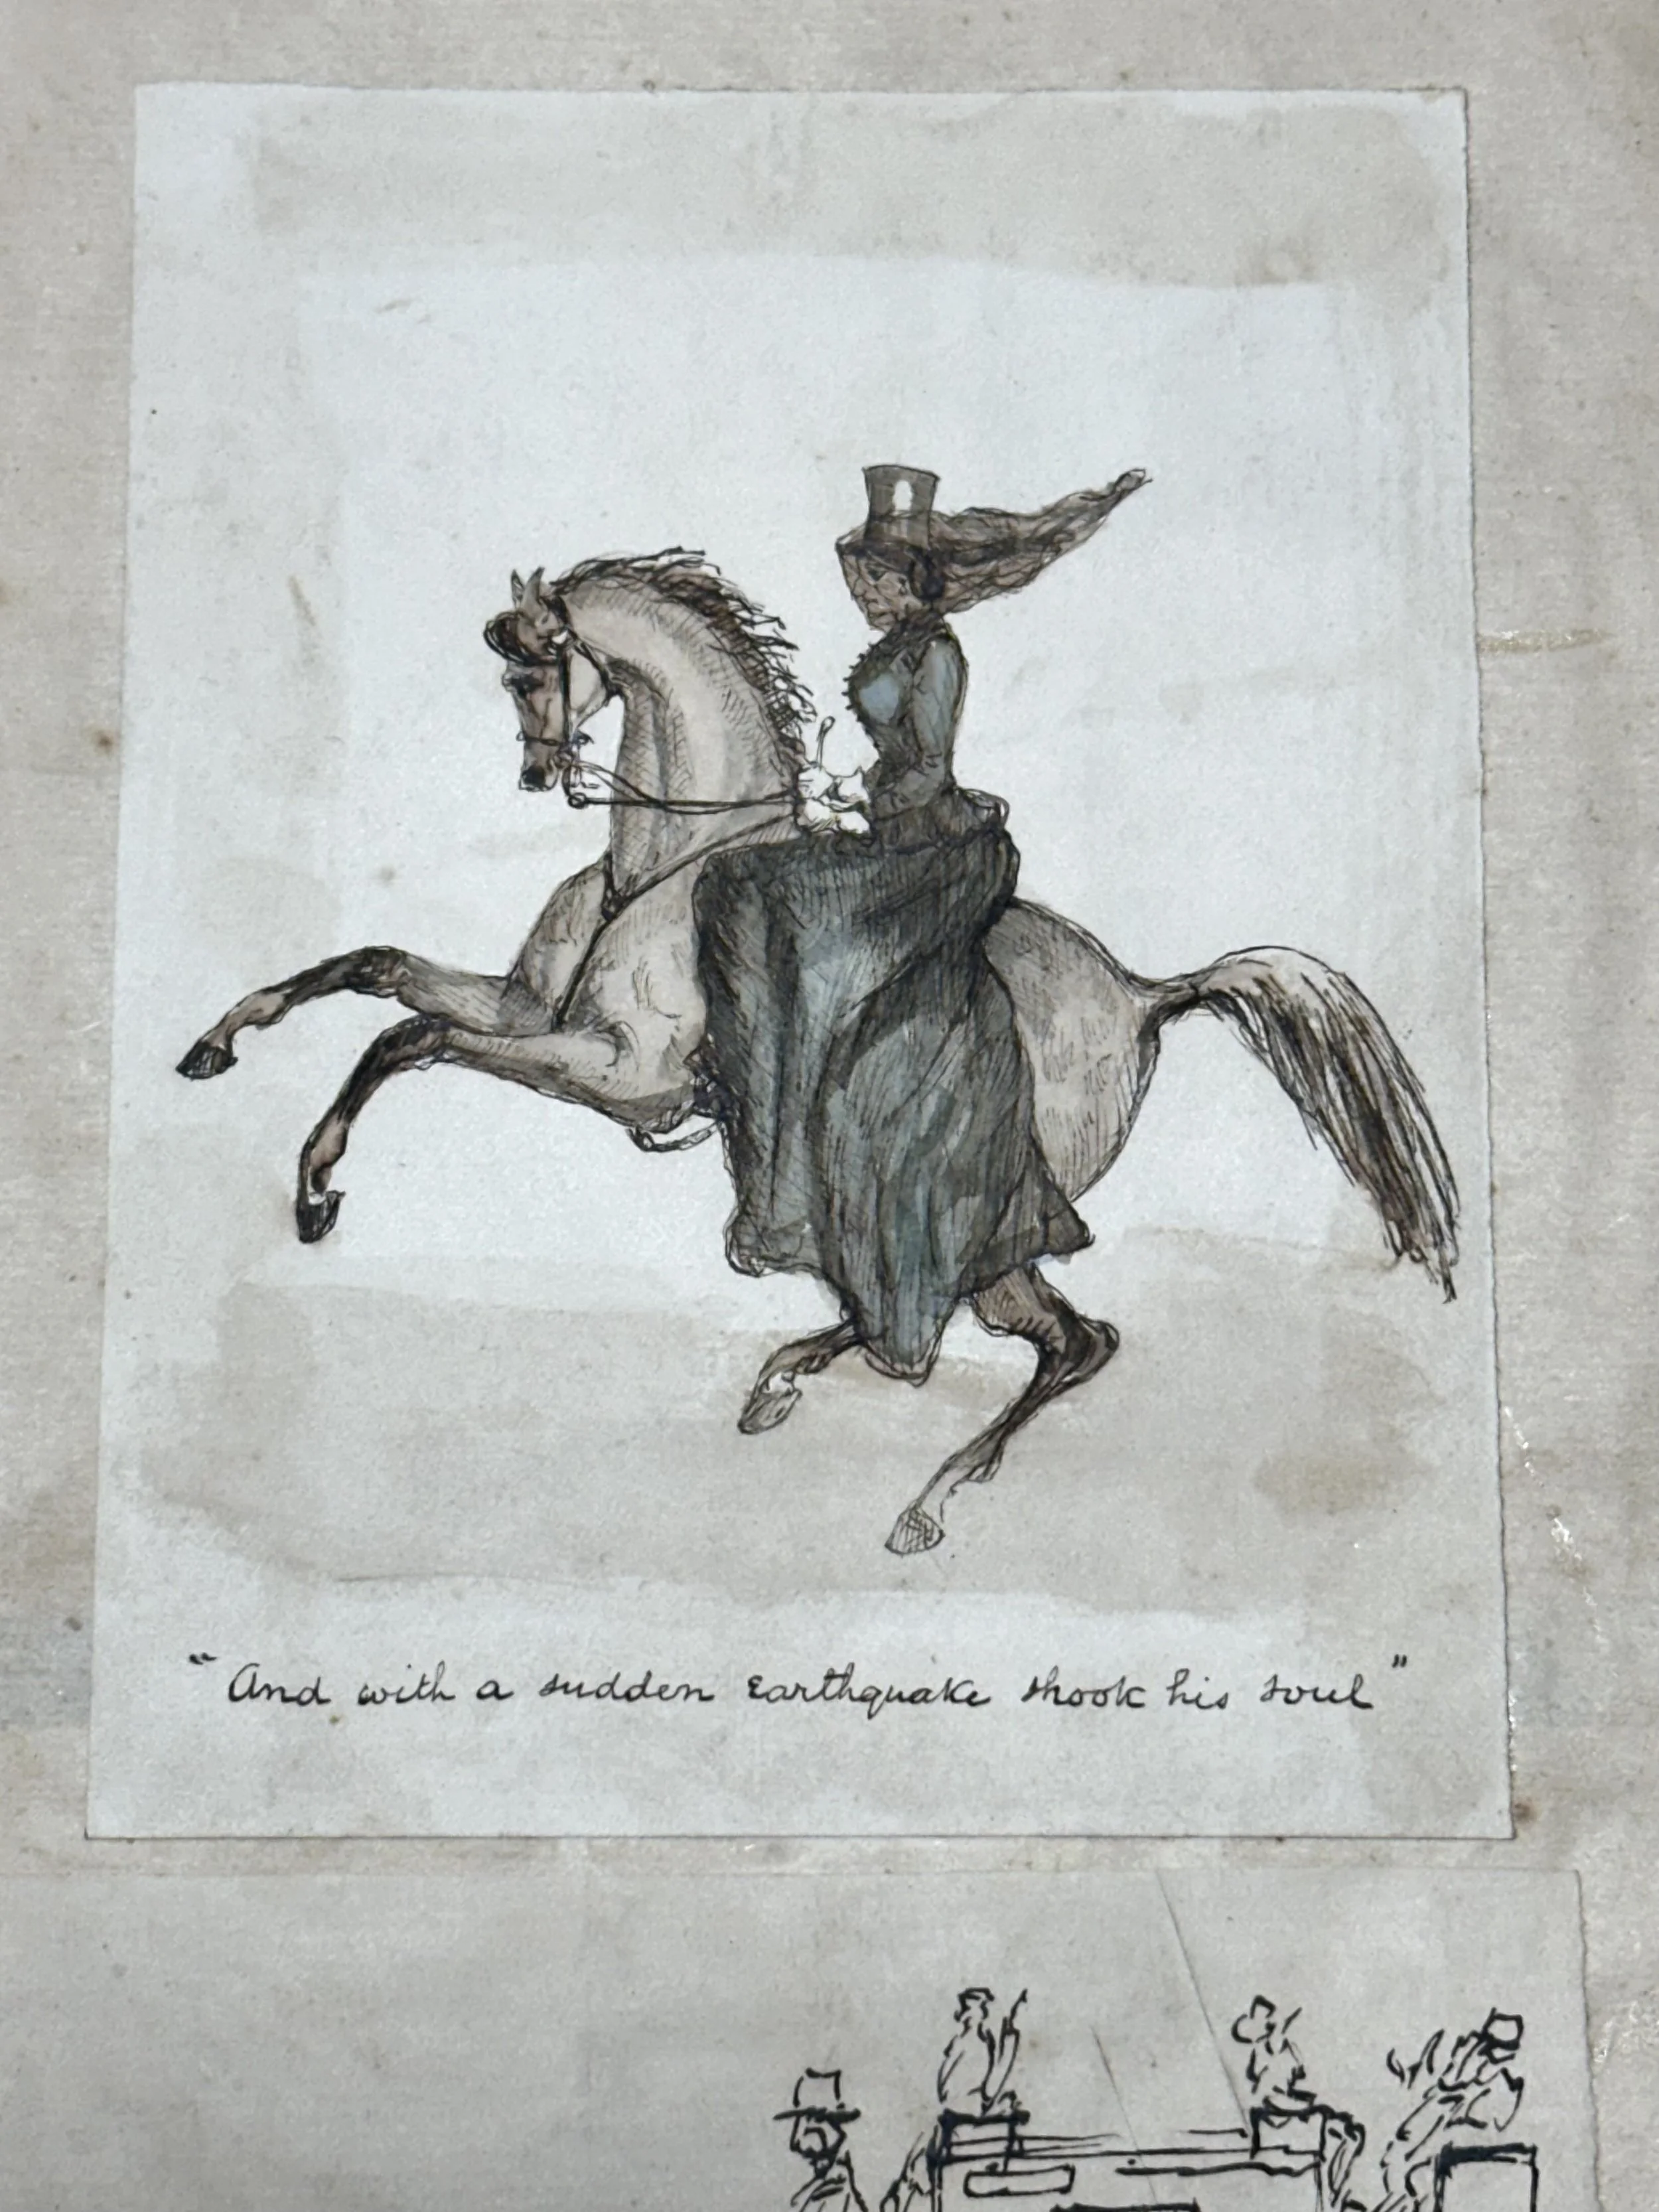 "And with a sudden Earthquake shook his soul"